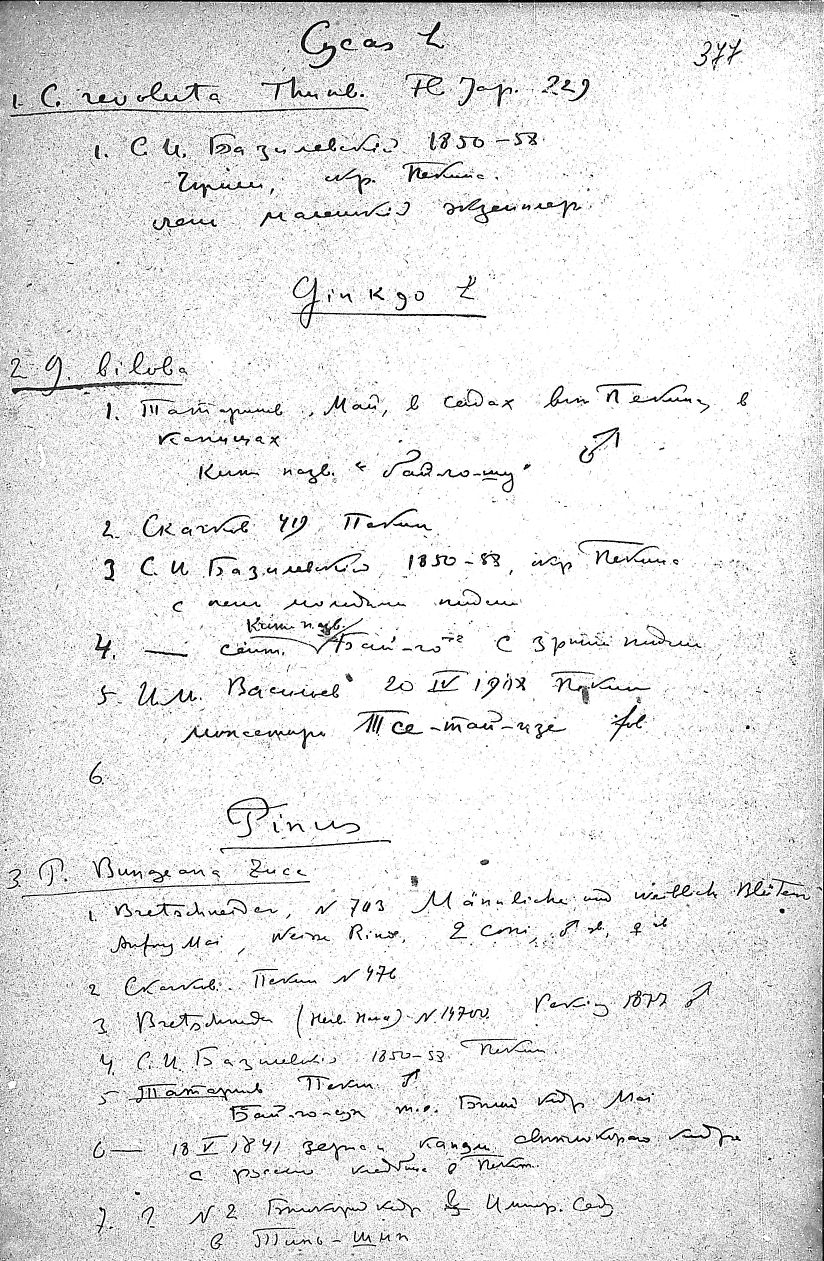 Cycas L
377
1. C. revoluta Thunb. Fl Jap. 229
1. С. И. Базилевскiй 1850-58
окр. Пекина.
маленькiй экземпляр
Ginkgo L
2 G. biloba
1. Татаринов, Май, в садах вн Пекина, в
капищах
Кит назв. " " ♂
2 Скачков 419 Пекин
3 С. И Базилевскiй 1850-58, окр Пекина
с молодыми плодами
Кит назв.
4. — сент. Бай-го с зрелыми плодами
5. И. М. Васильев 20 IV 1918 Пекин
монастырь Тсе-тай-цзе fol
6
Pinus
3 P. Bungeana Zucc
1. Bretschneider, N 703 Männliche und weiblich Blüten
Anfang Mai, Weisse Rinde, 2 coni, ♂ ♀
2 Скачков. Пекин N 476
3. Bretschneider (Herb. Hance) N. 14700. Peking 1877 ♂
4. С. И. Базилевскiй 1850-58. Пекин.
5 Татаринов Пекин ♂
т.е. Белый кедр Май
6 — 18 V 1841 кедра
с Пекин.
7. ? N 2 кедр Импер. Саду
в